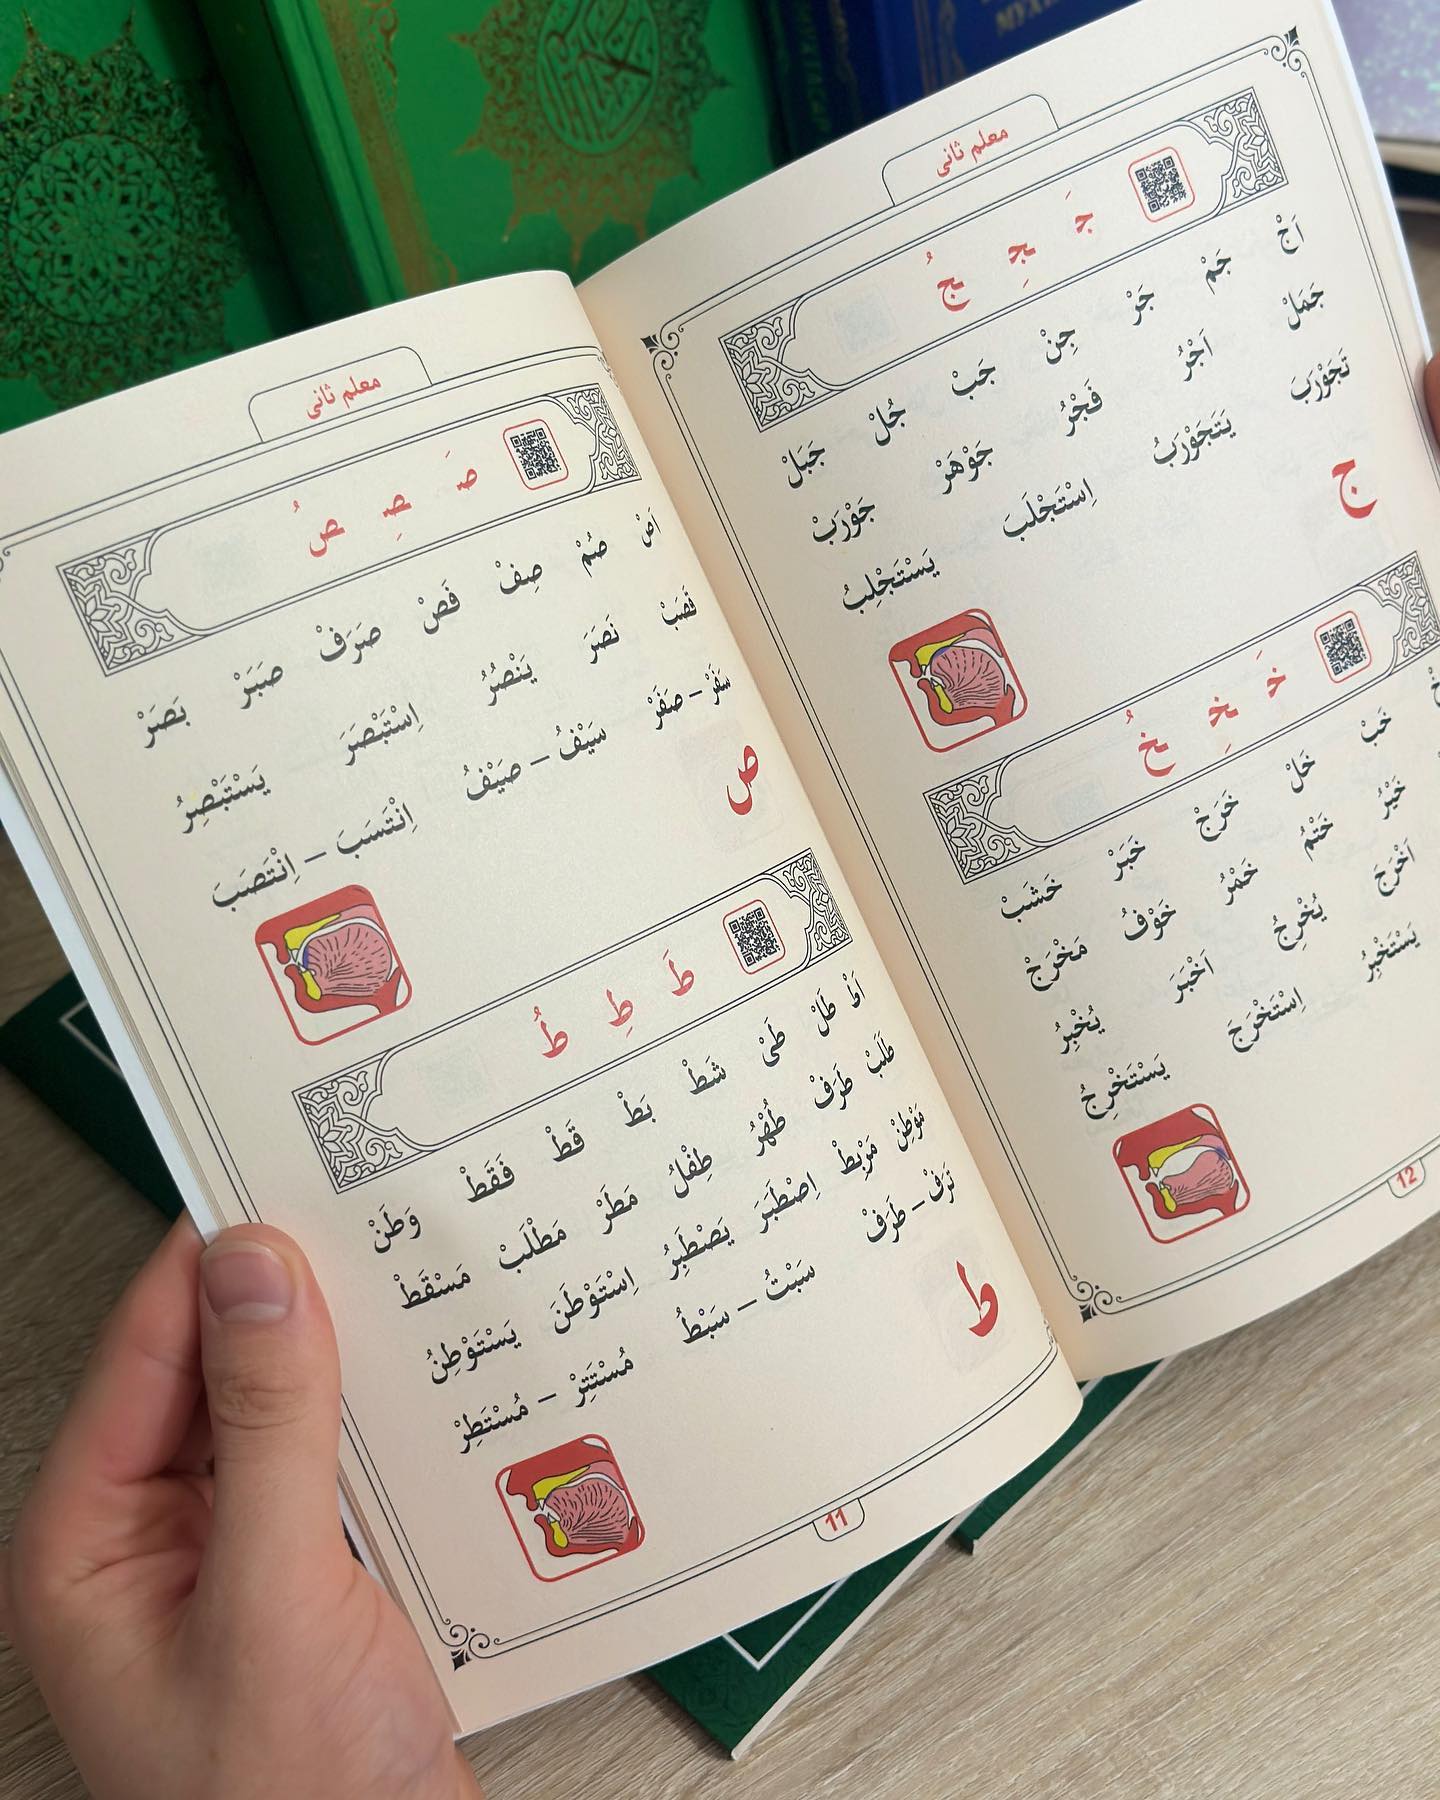 معلم ثانی
صَ صِ صُ
اَصْ صُمْ صِفْ قَصْ صَرَفْ صَبَرْ بَصَرْ
قَصَبْ نَصَرَ يَنْصُرُ اِسْتَبْصَرَ يَسْتَبْصِرُ
سَفَرْ – صَفَرْ سَيْفُ – صَيْفُ اِنْتَسَبَ – اِنْتَصَبَ
ص
طَ طِ طُ
اَطْ طَلْ طَىْ شَطْ بَطْ قَطْ فَقَطْ وَطَنْ
طَلَبْ طَرَفْ طُهْرُ طِفْلُ مَطَرْ مَطْلَبْ مَسْقَطْ
مَوْطِنْ مَرْبِطْ اِصْطَبَرَ يَصْطَبِرُ اِسْتَوْطَنَ يَسْتَوْطِنُ
تَرَفْ – طَرَفْ سَبْتُ – سَبْطُ مُسْتَتِرْ – مُسْتَطِرْ
ط
11
معلم ثانی
جَ جِ جُ
اَجْ جَمْ جَرْ جِنْ جَبْ جُلْ جَبَلْ
جَمَلْ اَجْرُ فَجْرُ جَوْهَرْ جَوْرَبْ
تَجَوْرَبَ يَتَجَوْرَبُ اِسْتَجْلَبَ يَسْتَجْلِبُ
ج
خَ خِ خُ
خَبْ خَلْ خَرَجْ خَبَرْ خَشَبْ
خَيْرُ خَتْمُ خَمْرُ خَوْفُ مَخْرَجْ
اَخْرَجَ يُخْرِجُ اَخْبَرَ يُخْبِرُ
يَسْتَخْبِرُ اِسْتَخْرَجَ يَسْتَخْرِجُ
12